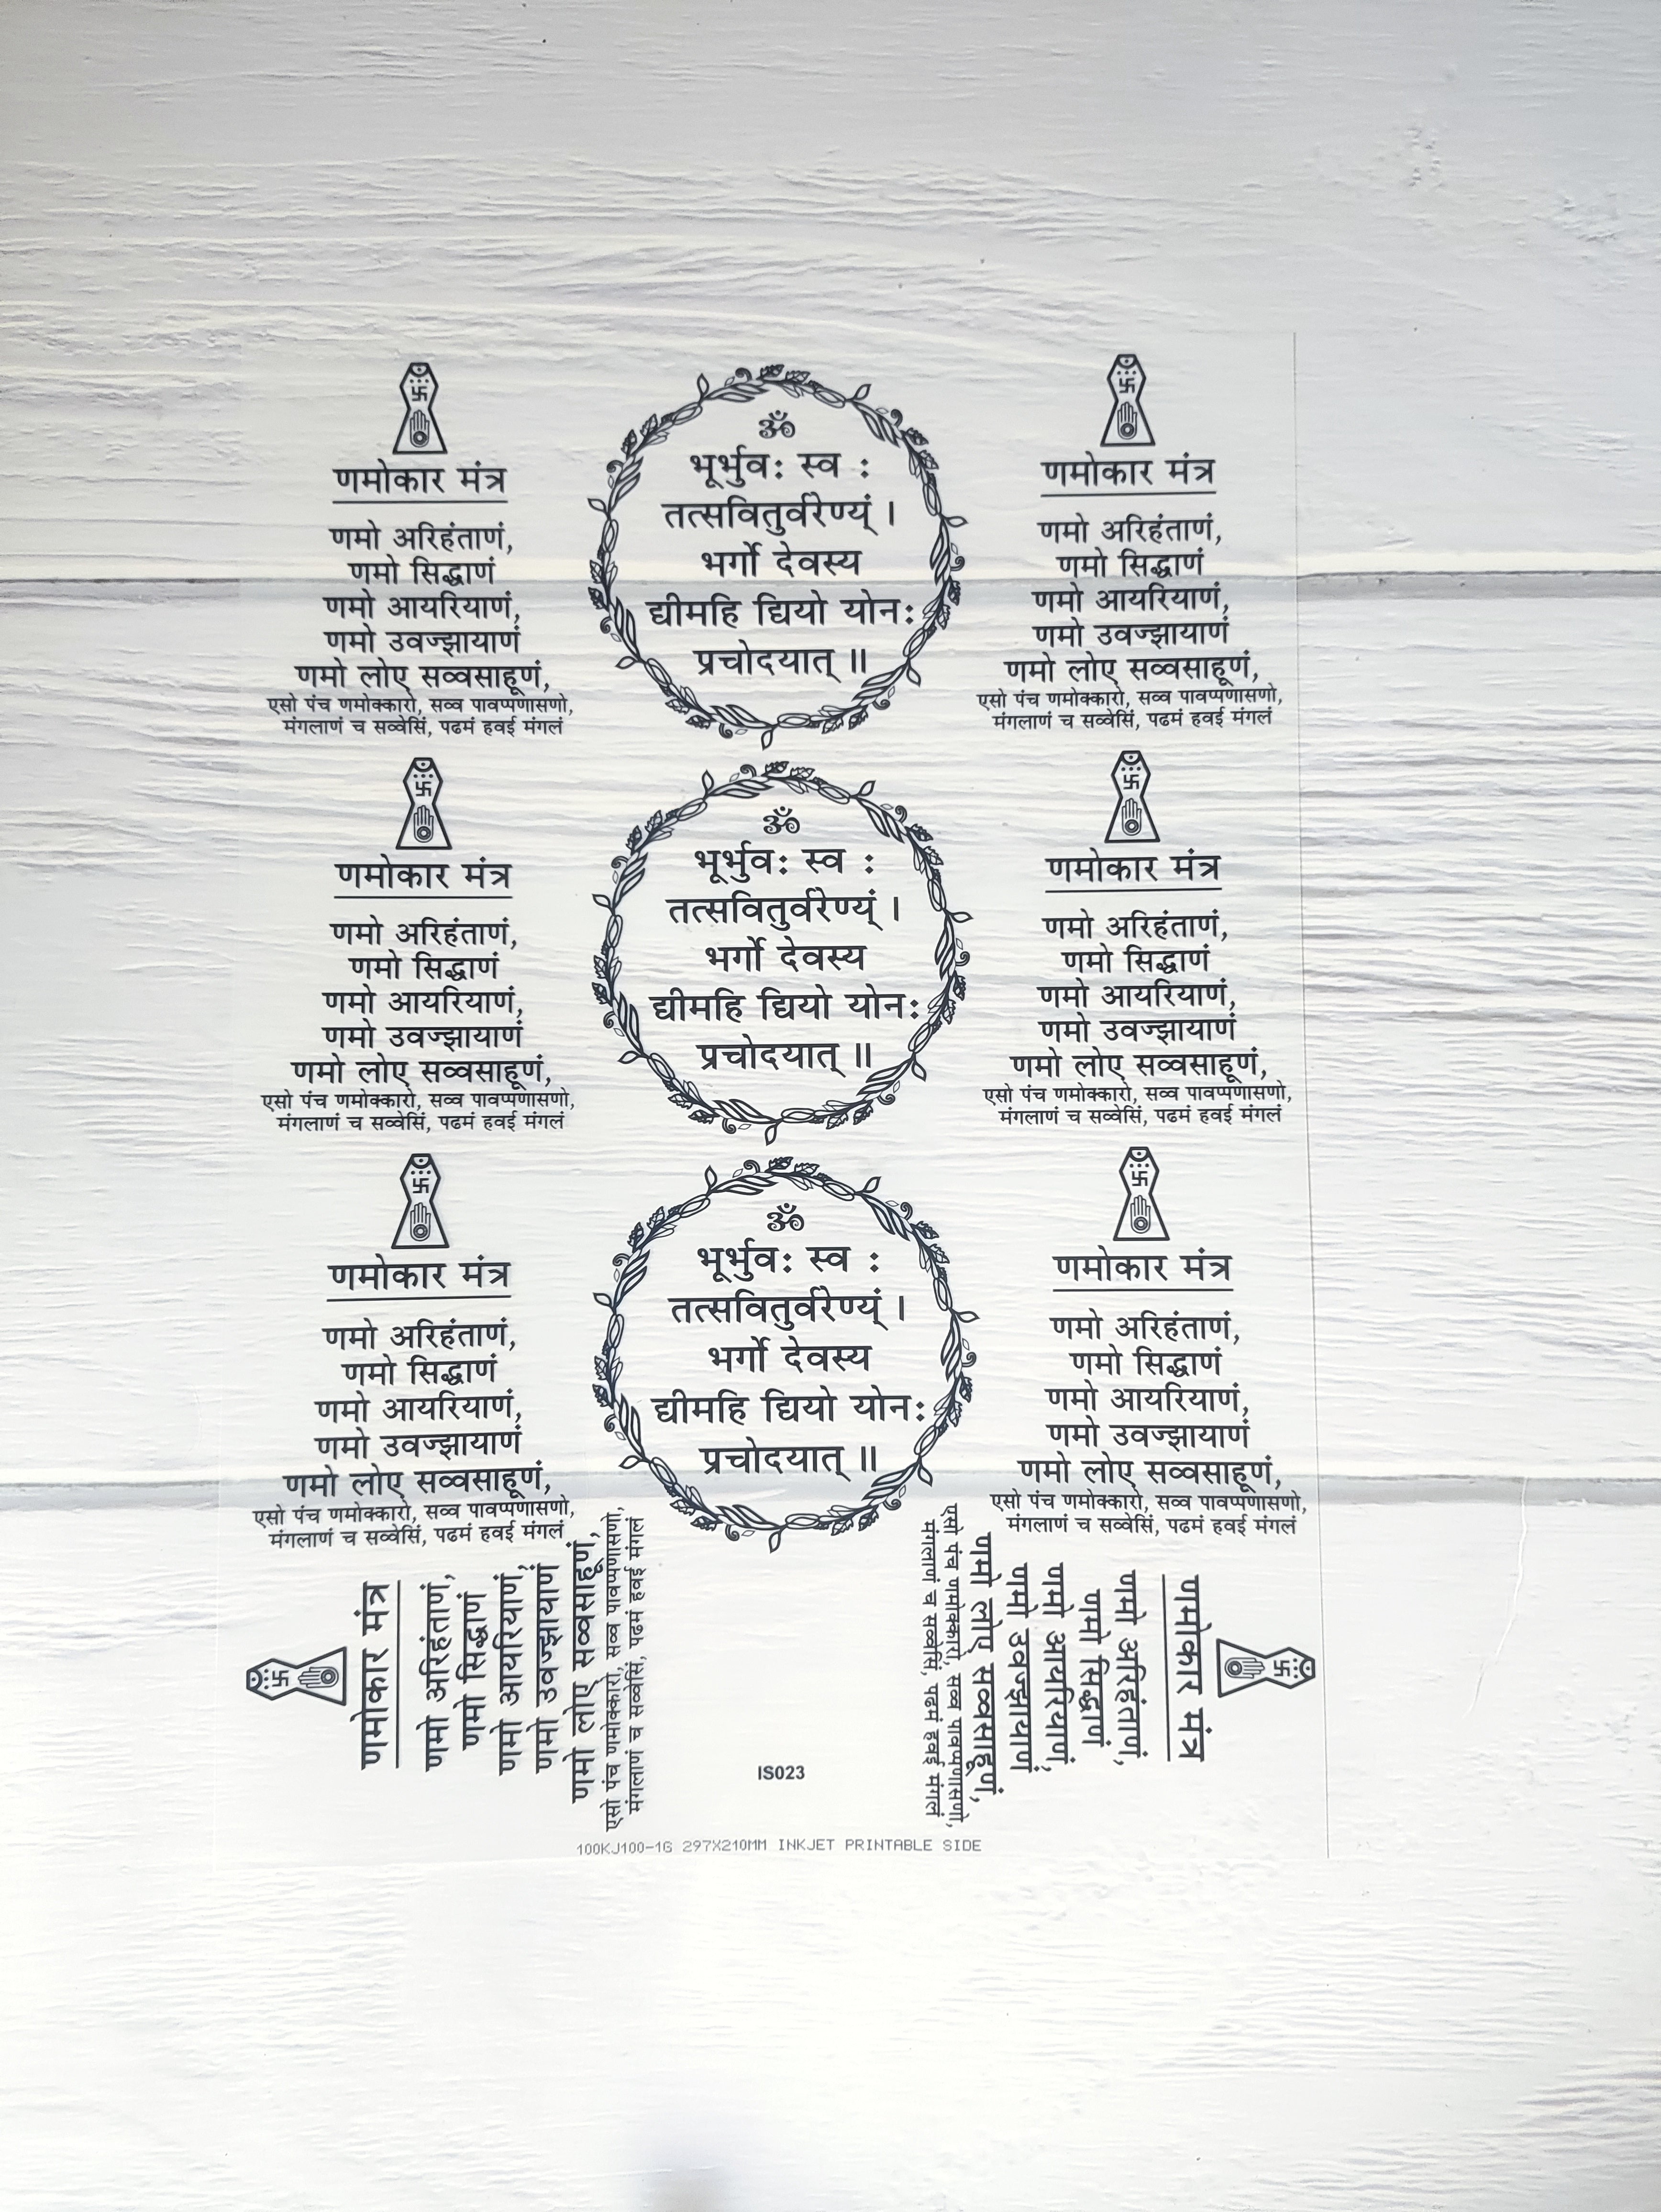 णमोकार मंत्र
णमो अरिहंताणं,
णमो सिद्धाणं
णमो आयरियाणं,
णमो उवज्झायाणं
णमो लोए सव्वसाहूणं,
एसो पंच णमोक्कारो, सव्व पावप्पणासणो,
मंगलाणं च सव्वेसिं, पढमं हवई मंगलं
ॐ
भूर्भुवः स्व :
तत्सवितुर्वरेण्यं ।
भर्गो देवस्य
द्यीमहि द्यियो योनः
प्रचोदयात् ॥
णमोकार मंत्र
णमो अरिहंताणं,
णमो सिद्धाणं
णमो आयरियाणं,
णमो उवज्झायाणं
णमो लोए सव्वसाहूणं,
एसो पंच णमोक्कारो, सव्व पावप्पणासणो,
मंगलाणं च सव्वेसिं, पढमं हवई मंगलं
णमोकार मंत्र
णमो अरिहंताणं,
णमो सिद्धाणं
णमो आयरियाणं,
णमो उवज्झायाणं
णमो लोए सव्वसाहूणं,
एसो पंच णमोक्कारो, सव्व पावप्पणासणो,
मंगलाणं च सव्वेसिं, पढमं हवई मंगलं
ॐ
भूर्भुवः स्व :
तत्सवितुर्वरेण्यं ।
भर्गो देवस्य
द्यीमहि द्यियो योनः
प्रचोदयात् ॥
णमोकार मंत्र
णमो अरिहंताणं,
णमो सिद्धाणं
णमो आयरियाणं,
णमो उवज्झायाणं
णमो लोए सव्वसाहूणं,
एसो पंच णमोक्कारो, सव्व पावप्पणासणो,
मंगलाणं च सव्वेसिं, पढमं हवई मंगलं
णमोकार मंत्र
णमो अरिहंताणं,
णमो सिद्धाणं
णमो आयरियाणं,
णमो उवज्झायाणं
णमो लोए सव्वसाहूणं,
एसो पंच णमोक्कारो, सव्व पावप्पणासणो,
मंगलाणं च सव्वेसिं, पढमं हवई मंगलं
ॐ
भूर्भुवः स्व :
तत्सवितुर्वरेण्यं ।
भर्गो देवस्य
द्यीमहि द्यियो योनः
प्रचोदयात् ॥
णमोकार मंत्र
णमो अरिहंताणं,
णमो सिद्धाणं
णमो आयरियाणं,
णमो उवज्झायाणं
णमो लोए सव्वसाहूणं,
एसो पंच णमोक्कारो, सव्व पावप्पणासणो,
मंगलाणं च सव्वेसिं, पढमं हवई मंगलं
णमोकार मंत्र
णमो अरिहंताणं,
णमो सिद्धाणं
णमो आयरियाणं,
णमो उवज्झायाणं
णमो लोए सव्वसाहूणं,
एसो पंच णमोक्कारो, सव्व पावप्पणासणो,
मंगलाणं च सव्वेसिं, पढमं हवई मंगलं
णमोकार मंत्र
णमो अरिहंताणं,
णमो सिद्धाणं
णमो आयरियाणं,
णमो उवज्झायाणं
णमो लोए सव्वसाहूणं,
एसो पंच णमोक्कारो, सव्व पावप्पणासणो,
मंगलाणं च सव्वेसिं, पढमं हवई मंगलं
IS023
100KJ100-1G 297X210MM INKJET PRINTABLE SIDE